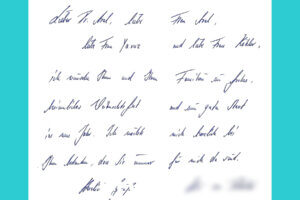 Lieber Dr. Axel, liebe Frau Axel,
liebe Frau und liebe Frau Köhler,
ich wünsche Ihnen und Ihren Familien ein frohes,
besinnliches Weihnachtsfest und ein guten Start
ins neue Jahr. Ich möchte mich herzlich bei
Ihnen bedanken, dass Sie immer für mich da sind.